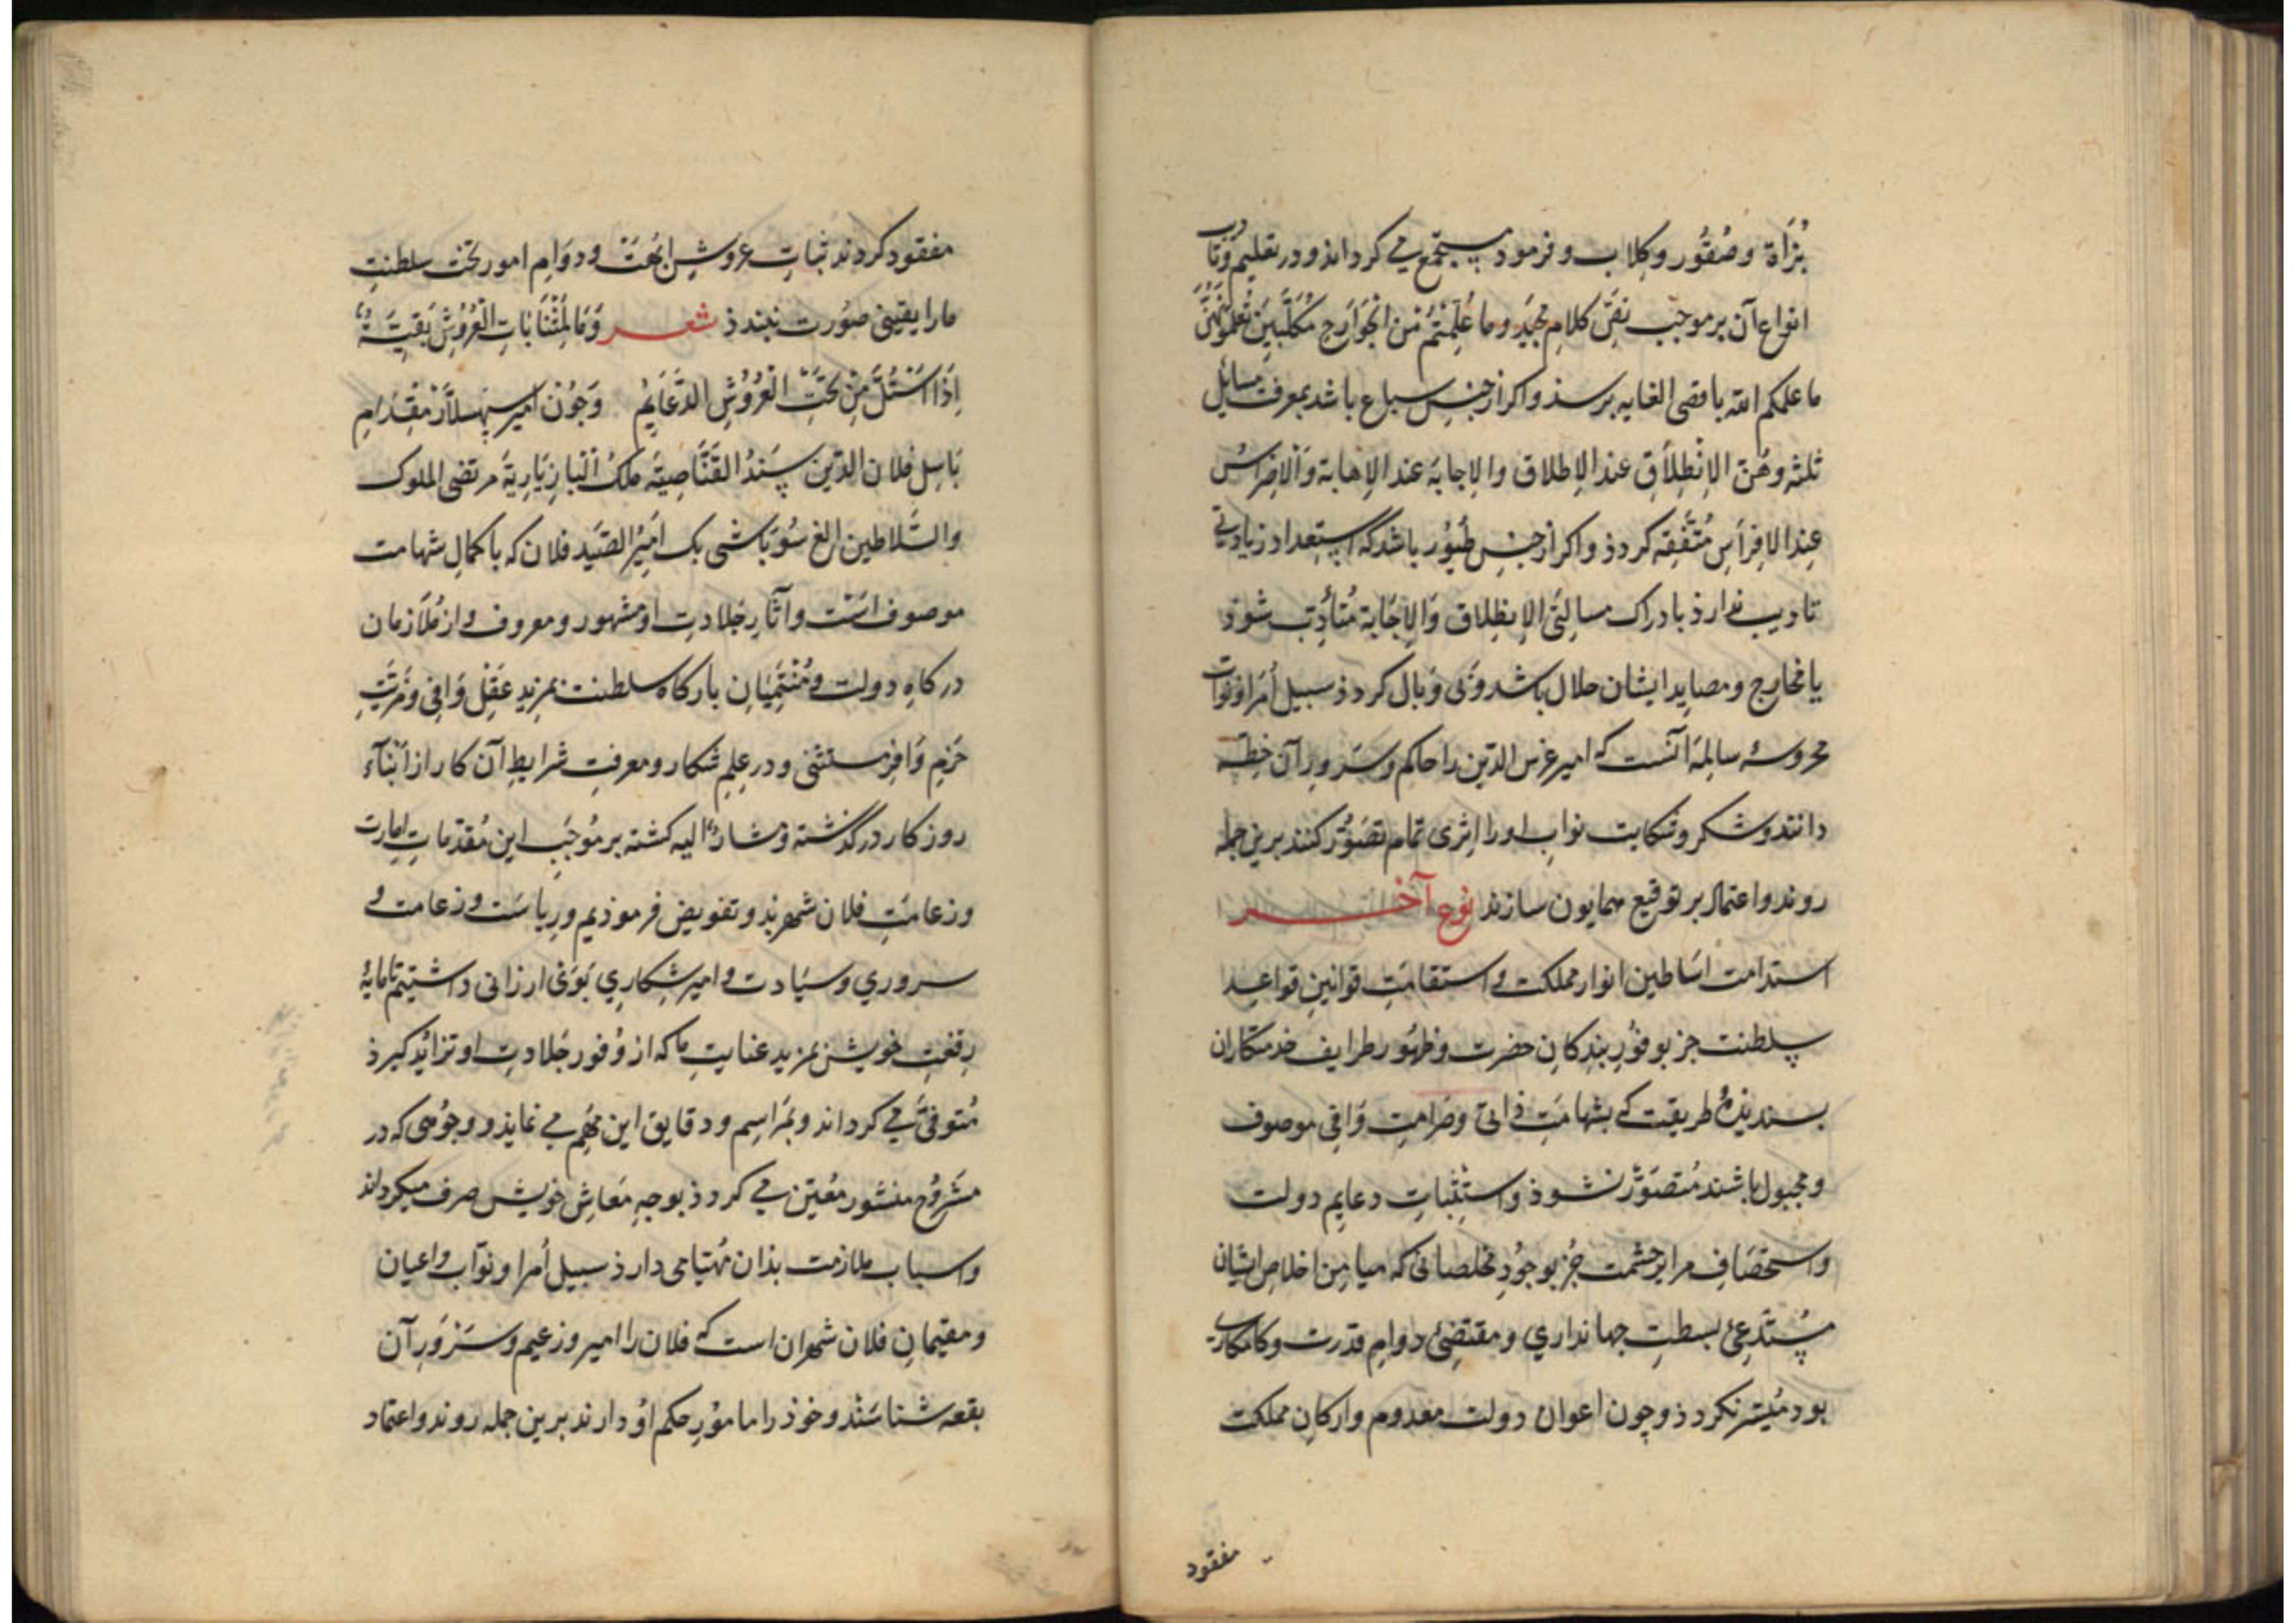 بُزَاة وصُقُور وكِلاب و فرمود مستجمع مي كرداند و در تعليم و تادرب
انواع آن بر موجب نصّ كلام مجيد وما عُلّمتُم مّن الجَوَارِح مُكَلّبِينَ تُعلّمُونَهُنَّ
ما علمكم الله باقصى الغايه برسذ واكر از جنس سباع باشد بمعرفت مسائل
ثلثه وهُنّ الإنْطِلاَقِ عند الإطلاق والإجابَة عند الإهابة والافتراسُ
عِند الافراسِ مُتَّفقه كردذ واكر از جنس طيُور باشد كه استعداد زيادتي
تاديب ندارذ بادراك مسالتَي الإنطلاق وَالإجَابة مُتأدّب شوذ
يا مخارج ومصايد ايشان حلال باشد و بَى وبال كردذ سبيل اُمَرا و نوّاب
محروسهٔ سالمَة آنست كه امير غرس الدّين را حاكم و سَرورِ آن خِطّه
دانند و شكر و شكايت نوابِ او را اثرى تمام تصَوُّر كنند برين جمله
روند و اعتماد بر توقيع همايون سازند نوع آخر
استدامت اَسَاطين انوار مملكت و استقامَتِ قوانينِ قواعد
سلطنت جز بوفُورِ بندكانِ حضرت و ظهُور طرايف خدمتكاران
بسنديذهٔ طريقت كه بشهامَتِ ذاتى و صرامتِ وَافى موصوف
و مجبول باشند مُتصَوَّر نشوذ و استثباتِ دعايم دولت
و استحصَافِ مراير حشمت جُز بوجُودِ مخلصانى كه ميامِن اخلاصِ ايشان
مُستَدعِىٔ بسطتِ جهانداري و مقتضىٔ دوامِ قدرت و كامكارى
بود مُيسّر نكردذ و چون اعوان دولت معدوم و اركانِ مملكت
مفقود
مفقود كردند ثباتِ عروشِ ابُهّت و دوَامِ امور تخت سلطنتِ
ما را يقينى صُورت نبندذ شعر وَمَا لِمَثْنَا بَاتِ العُرُوْشِ بَقيّةٌ
اِذَا اسْتُلَّ مِنْ تحتِ العُرُوْشِ الدّعَايِمُ وَچُون امير سپهسلاَر مقدَامِ
بَاسِل فلان الدّين سَندُ القَنَّاصِيّه مَلكُ البَازيَارِيّة مرتضى الملوك
والسّلاطين الغ سُوبَاشى بك اميرُ الصّيد فلان كه با كمالِ شهامت
موصوف است و آثارِ جلادتِ او مشهور و معروف و از مُلازمان
دركاهِ دولت و مُنْتَمِيَانِ باركاهِ سلطنت بمزيدِ عقلِ وَافى و مَزيّتِ
حَزمِ وَافِر مستثنى و در عِلمِ شكار و معرفتِ شرايطِ آن كار از اَبْنَآءِ
روزكار دركذشته و مشارٌ اليه كشته بر مُوجَبِ اين مُقدّمات اِمارت
و زعامَتِ فلان شهر بذو تفويض فرموذيم و رياسَت و زعامت و
سروري و سيَادت و امير شكاري بوَى ارزانى داشتيم تا مايهٔ
رِفعتِ خويش بمزيدِ عنايتِ ما كه از وُفور جَلادتِ او تزايُد كيرذ
مُتوفّى مي كرداند و بمَراسِم و دقايق اين مهمّ مي نمايذ و وجُوهى كه در
مَشروُح منشور مُعيّن مي كردذ بوجهِ مَعَاشِ خويش صرف ميكرداند
و اسبابِ ملازمت بذان مُهيّا مى دارذ سبيل اُمرا و نوّاب و اعيان
و مقيمانِ فلان شهر ان است كه فلان را امير و زعيم و سَروَرِ آن
بقعه شناسَند و خوذ را مامورِ حكمِ اوُ دارند برين جمله روند و اعتماد